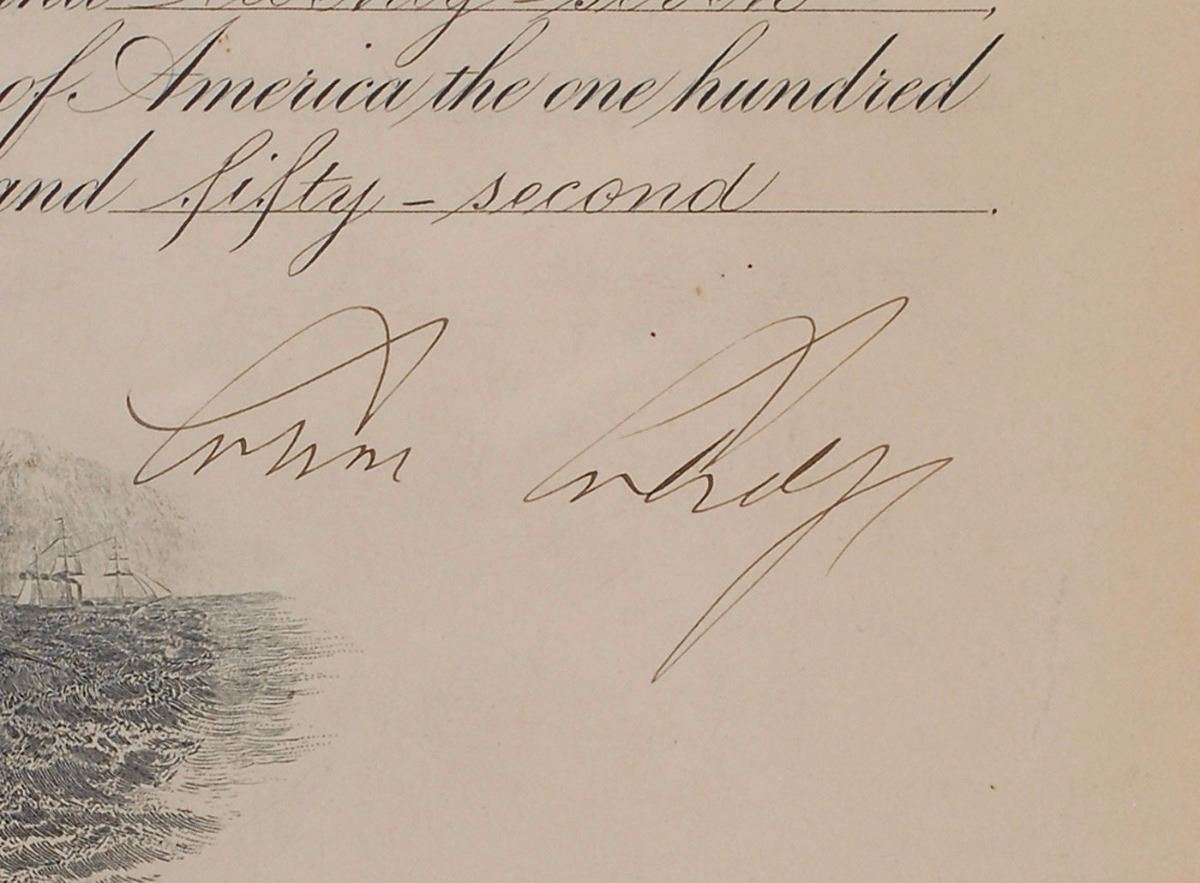 and twenty-seven,
of America the one hundred
and fifty-second.
Calvin Coolidge